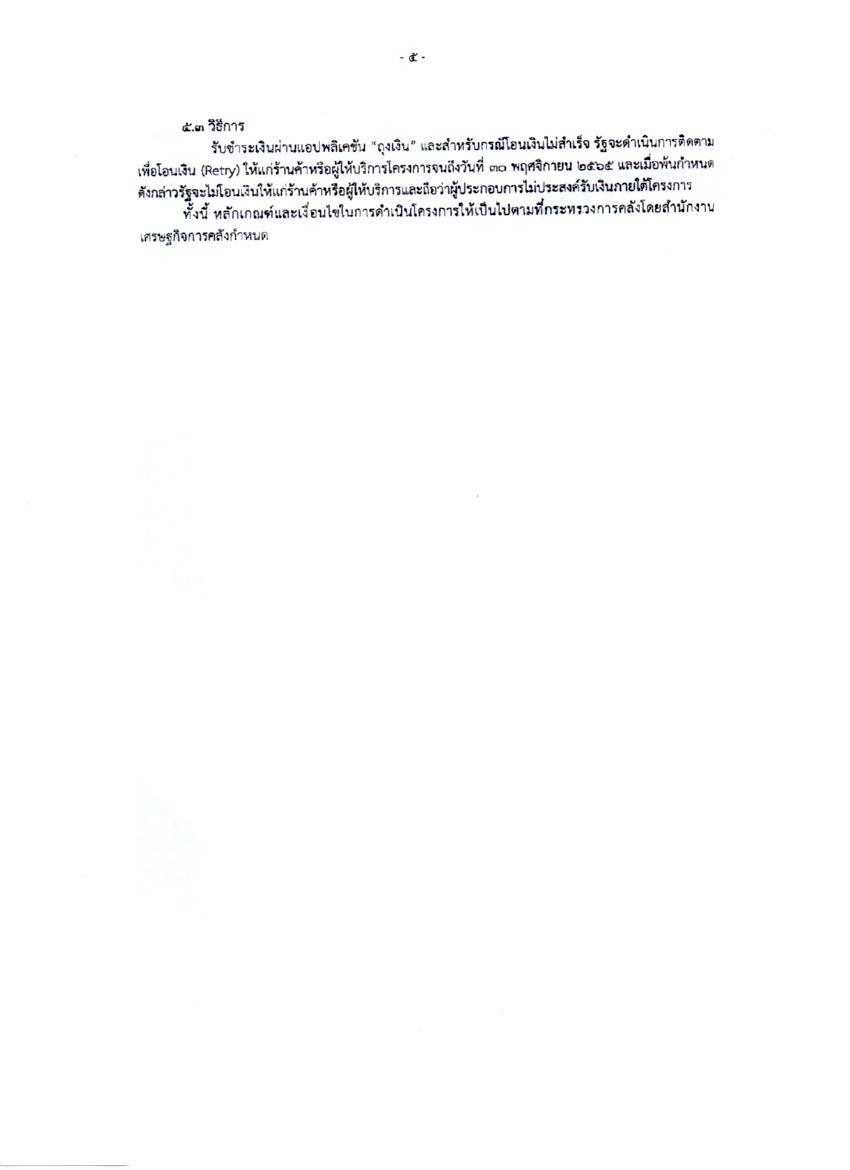 - ๕ -
๕.๓ วิธีการ
รับชำระเงินผ่านแอปพลิเคชัน “ถุงเงิน” และสำหรับกรณีโอนเงินไม่สำเร็จ รัฐจะดำเนินการติดตาม
เพื่อโอนเงิน (Retry) ให้แก่ร้านค้าหรือผู้ให้บริการโครงการจนถึงวันที่ ๓๐ พฤศจิกายน ๒๕๖๕ และเมื่อพ้นกำหนด
ดังกล่าวรัฐจะไม่โอนเงินให้แก่ร้านค้าหรือผู้ให้บริการและถือว่าผู้ประกอบการไม่ประสงค์รับเงินภายใต้โครงการ
ทั้งนี้ หลักเกณฑ์และเงื่อนไขในการดำเนินโครงการให้เป็นไปตามที่กระทรวงการคลังโดยสำนักงาน
เศรษฐกิจการคลังกำหนด